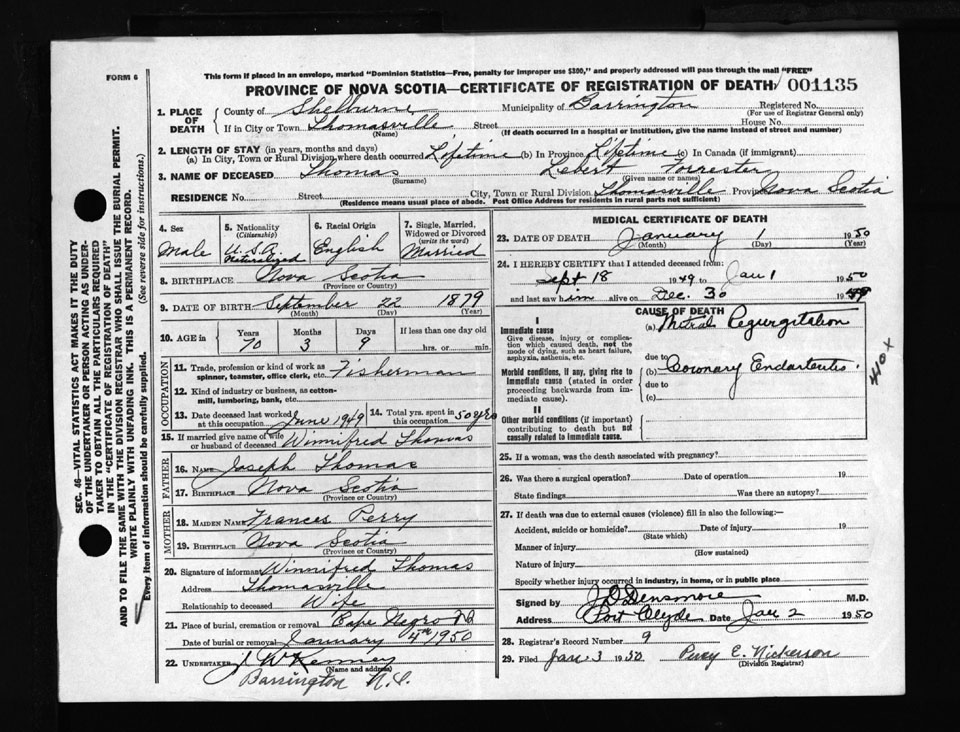 FORM 6
This form if placed in an envelope, marked "Dominion Statistics—Free, penalty for improper use $300," and properly addressed will pass through the mail "FREE"
PROVINCE OF NOVA SCOTIA—CERTIFICATE OF REGISTRATION OF DEATH 001135
SEC. 46—VITAL STATISTICS ACT MAKES IT THE DUTY
OF THE UNDERTAKER OR PERSON ACTING AS UNDER-
TAKER TO OBTAIN ALL THE PARTICULARS REQUIRED
IN THE "CERTIFICATE OF REGISTRATION OF DEATH"
AND TO FILE THE SAME WITH THE DIVISION REGISTRAR WHO SHALL ISSUE THE BURIAL PERMIT.
WRITE PLAINLY WITH UNFADING INK. THIS IS A PERMANENT RECORD.
Every item of information should be carefully supplied. (See reverse side for instructions.)
1. PLACE OF DEATH
County of Shelburne Municipality of Barrington Registered No.
(For use of Registrar General only)
If in City or Town Thomasville Street House No.
(Name) (If death occurred in a hospital or institution, give the name instead of street and number)
2. LENGTH OF STAY (in years, months and days)
(a) In City, Town or Rural Division where death occurred Lifetime (b) In Province Lifetime (c) In Canada (if immigrant)
3. NAME OF DECEASED Thomas Lebert Forrester
(Surname) (Given name or names)
RESIDENCE No. Street City, Town or Rural Division Thomasville Province Nova Scotia
(Residence means usual place of abode. Post Office Address for residents in rural parts not sufficient)
4. Sex
Male
5. Nationality
(Citizenship)
U.S.A.
Naturalized
6. Racial Origin
English
7. Single, Married,
Widowed or Divorced
(write the word)
Married
8. BIRTHPLACE Nova Scotia
(Province or Country)
9. DATE OF BIRTH September 22 1879
(Month) (Day) (Year)
10. AGE in
Years Months Days If less than one day old
70 3 9 hrs. or min.
OCCUPATION
11. Trade, profession or kind of work as Fisherman
spinner, teamster, office clerk, etc.
12. Kind of industry or business, as cotton-
mill, lumbering, bank, etc.
13. Date deceased last worked
at this occupation June 1949
14. Total yrs. spent in
this occupation 50 yrs
15. If married give name of wife
or husband of deceased Winnifred Thomas
FATHER
16. NAME Joseph Thomas
17. BIRTHPLACE Nova Scotia
(Province or Country)
MOTHER
18. MAIDEN NAME Frances Perry
19. BIRTHPLACE Nova Scotia
(Province or Country)
20. Signature of informant Winnifred Thomas
Address Thomasville
Relationship to deceased Wife
21. Place of burial, cremation or removal Cape Negro N.S.
Date of burial or removal January 4th 1950
22. UNDERTAKER J W Kenney
(Name and address)
Barrington N.S.
MEDICAL CERTIFICATE OF DEATH
23. DATE OF DEATH January 1 1950
(Month) (Day) (Year)
24. I HEREBY CERTIFY that I attended deceased from:
Sept 18 1949 to Jan 1 1950
and last saw him alive on Dec. 30 1949
CAUSE OF DEATH
I
Immediate cause
Give disease, injury or complica-
tion which caused death, not the
mode of dying, such as heart failure,
asphyxia, asthenia, etc.
(a) Mitral Regurgitation
due to
Morbid conditions, if any, giving rise to
immediate cause (stated in order
proceeding backwards from im-
mediate cause).
(b) Coronary Endarteritis.
due to
(c)
410 x
II
Other morbid conditions (if important)
contributing to death but not
causally related to immediate cause.
25. If a woman, was the death associated with pregnancy?
26. Was there a surgical operation? Date of operation 19
State findings Was there an autopsy?
27. If death was due to external causes (violence) fill in also the following:—
Accident, suicide or homicide? Date of injury 19
(State which)
Manner of injury
(How sustained)
Nature of injury
Specify whether injury occurred in industry, in home, or in public place
Signed by J D Densmore M.D.
Address Port Clyde Date Jan 2 1950
28. Registrar's Record Number 9
29. Filed Jan 3 1950 Percy E. Nickerson
(Division Registrar)